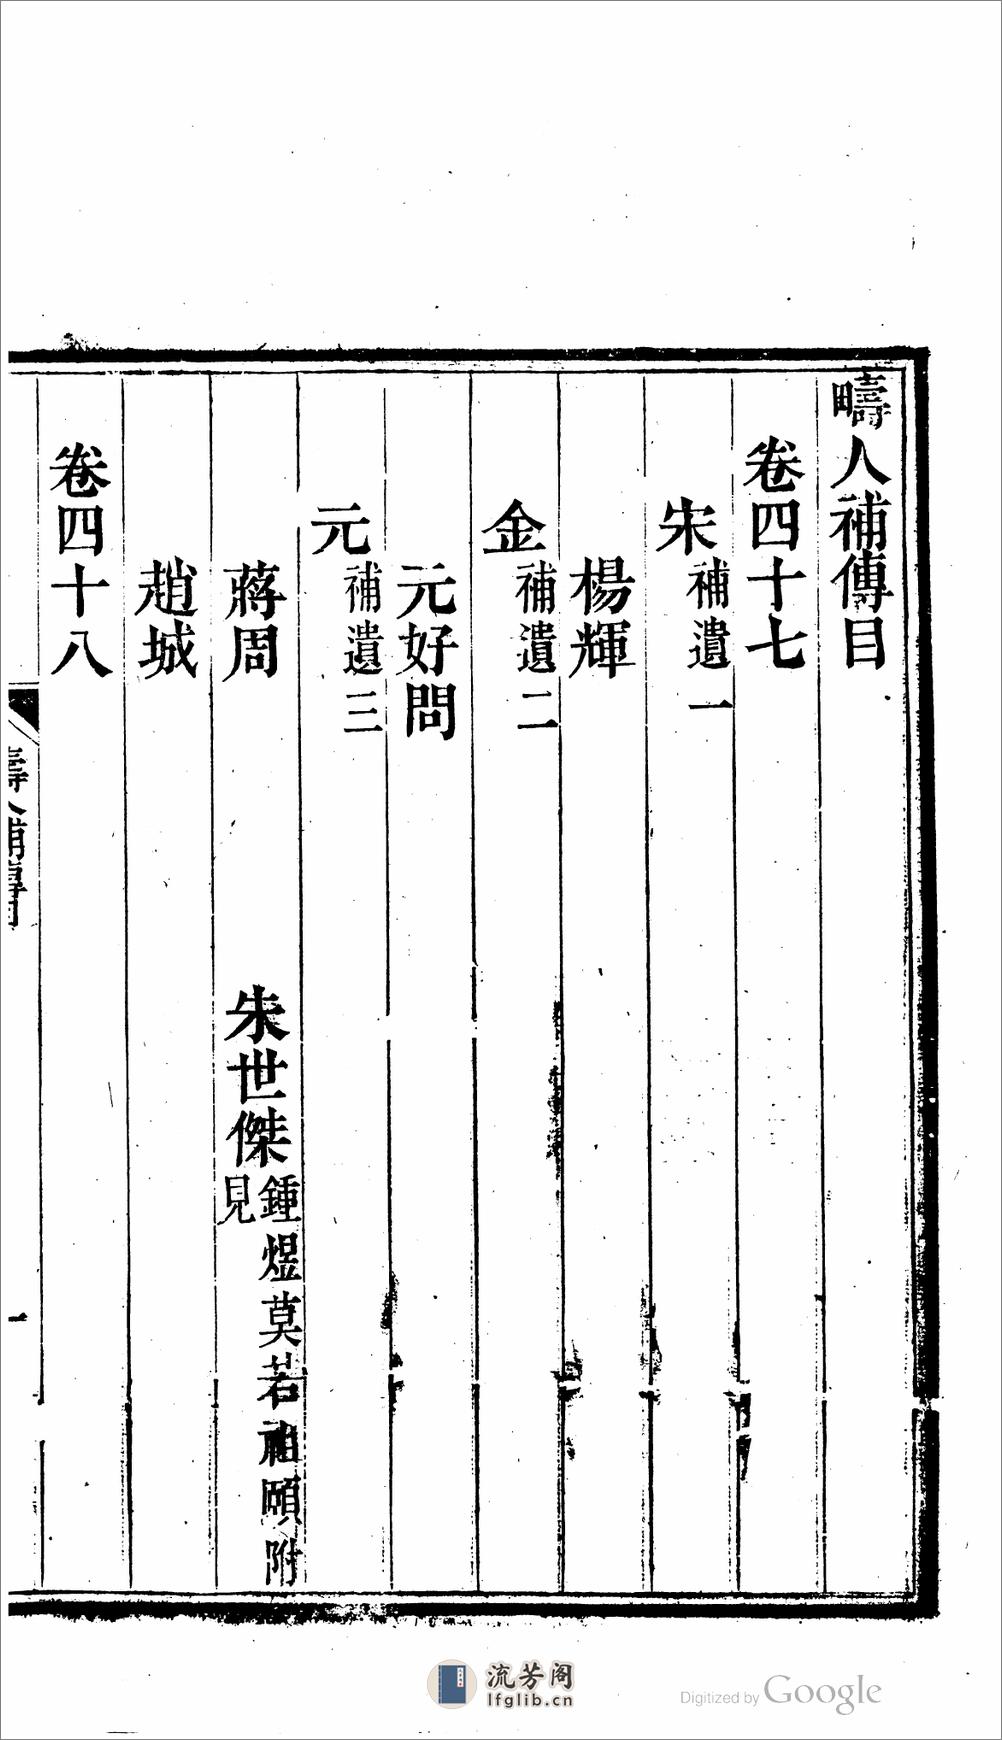 疇人補傳目
卷四十七
宋補遺一
楊輝
金補遺二
元好問
元補遺三
蔣周 朱世傑鍾煜莫若祖頤附見
趙城
卷四十八
疇人補傳目
一
流芳阁
lfglib.cn
Digitized by Google